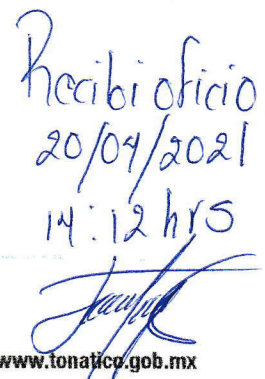 Recibi oficio
20/04/2021
14:12 hrs
www.tonatico.gob.mx